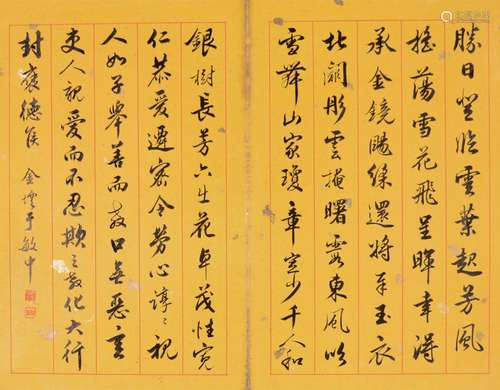 勝日登臨雲葉起芳風
搖蕩雪花飛呈暉幸得
承金鏡颺綵還將奉玉衣
北闕彤雲掩曙霞東風吹
雪舞山家瓊章定少千人和
銀樹長芳六出花卓茂性寬
仁恭愛遷密令勞心諄〻視
人如子舉善而教口無惡言
吏人親愛而不忍欺之教化大行
封褒德侯 金壇于敏中